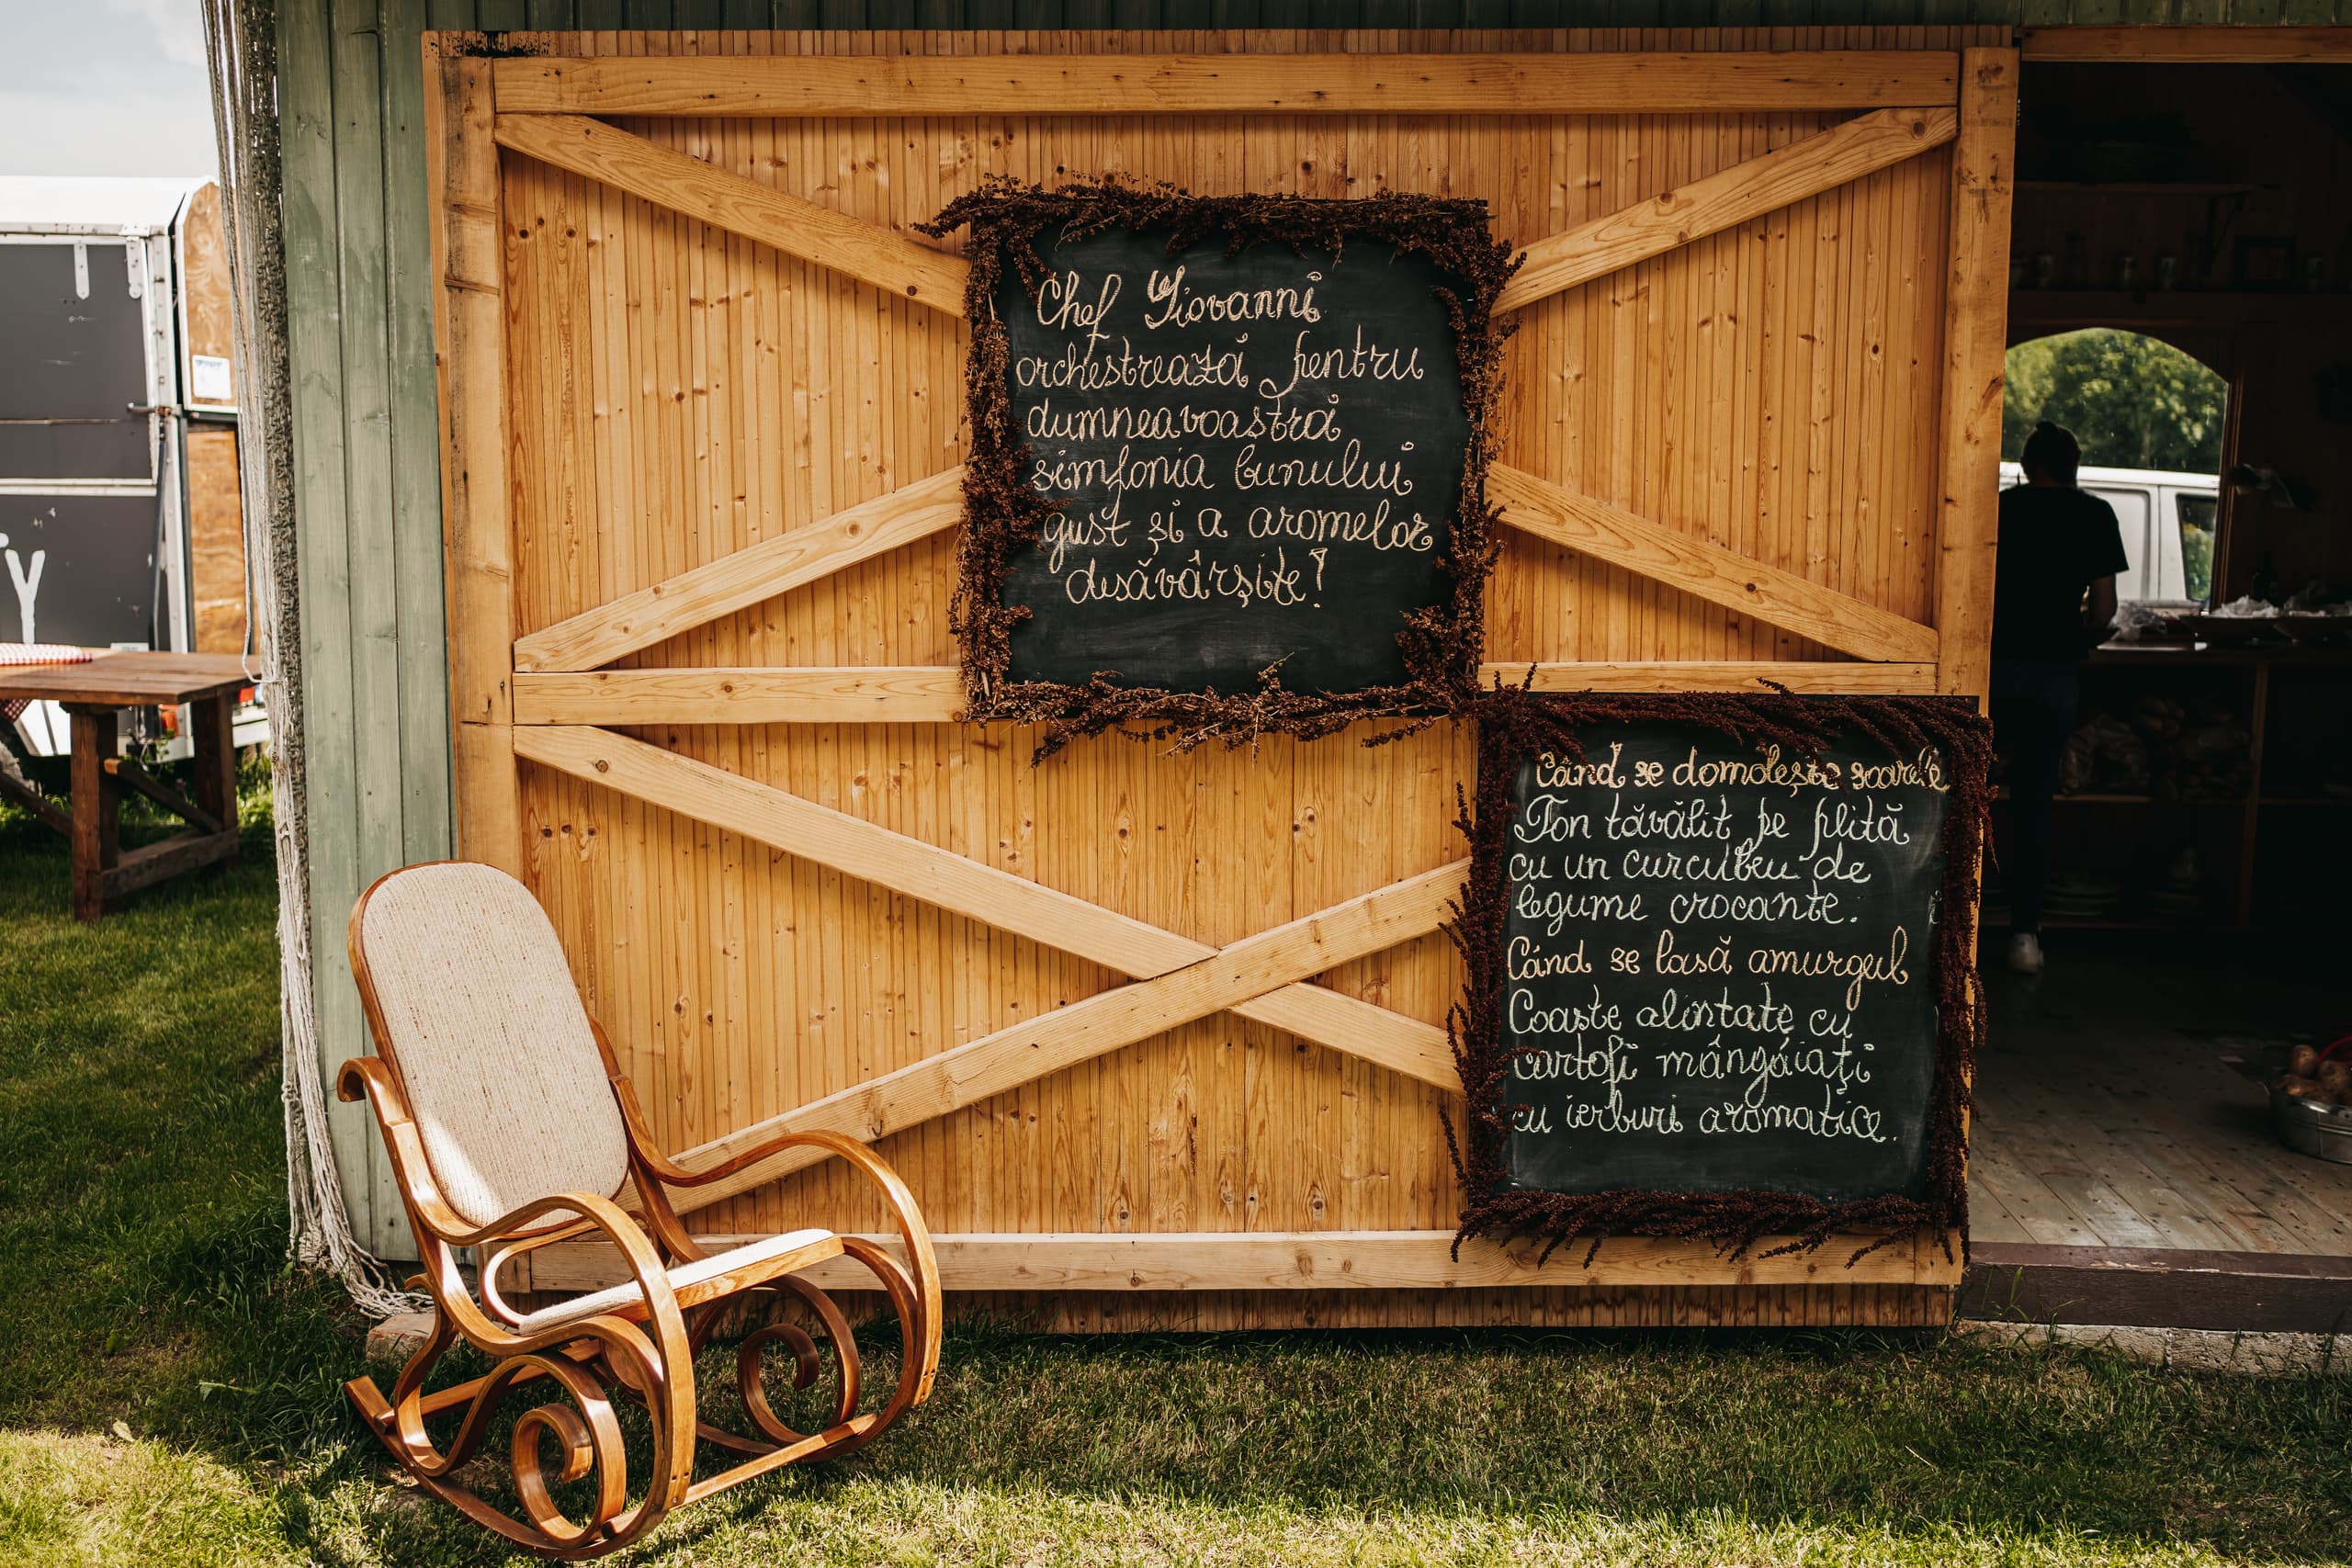 Chef Giovanni
orchestrează pentru
dumneavoastră
simfonia bunului
gust și a aromelor
desăvârșite!
Când se domolește soarele
Ton tăvălit pe plită
cu un curcubeu de
legume crocante.
Când se lasă amurgul
Coaste alintate cu
cartofi mângâiați
cu ierburi aromatice.
Y